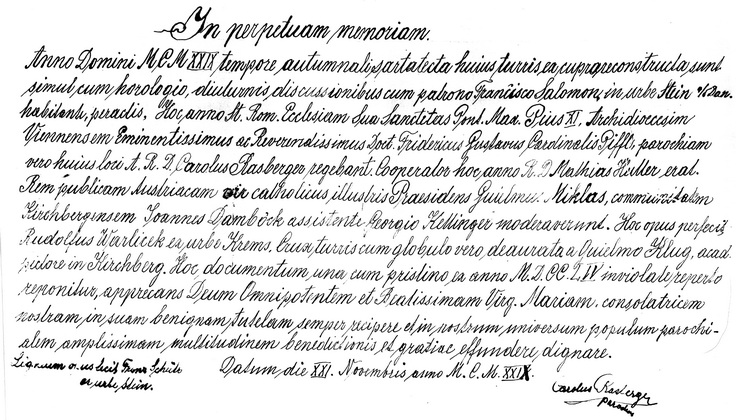 In perpetuam memoriam.
Anno Domini M.C.M XXIX tempore autumnali, sartatecta huius turris, ex cupro reconstructa, sunt
simul, cum horologio, diuturnis, discussionibus cum patrono Francisco Salomon, in urbe Stein a/Dan.
habitante, peractis. Hoc anno St. Rom. Ecclesiam Sua Sanctitas Pont. Max. Pius XI. Archidioecesim
Viennensem Eminentissimus ac Reverendissimus Doct. Fridericus Gustavus Cardinalis Piffl, parochiam
vero huius loci A. R. D. Carolus Rasberger, regebant. Cooperator hoc anno R. D. Mathias erat.
Rem publicam Austriacam vir catholicus illustris Praesidens Guielmus Miklas, communitatem
Kirchbergensem Joannes Damböck assistente Georgio Kettinger moderaverunt. Hoc opus perfecit
Rudolfus Warlicek ex urbe Krems. Crux, turris cum globulo vero, deaurata a Guielmo Klug, acad.
pictore in Kirchberg. Hoc documentum, una, cum pristino, ex anno M.D.CC.L.IV inviolate, reperto
reponitur, apprecans Deum Omnipotentem et Beatissimam Virg. Mariam. consolatricem
nostram, in suam benignam, tutelam semper recipere et in nostrum universum populum parochi-
alem amplissimam, multitudinem benedictionis, et gratiae effundere, dignare.
Datum, die XXI. Novembris, anno M.C.M. XXIX.
Lignum fecit Franz Schütz
ex urbe, Stein.
Carolus Rasberger